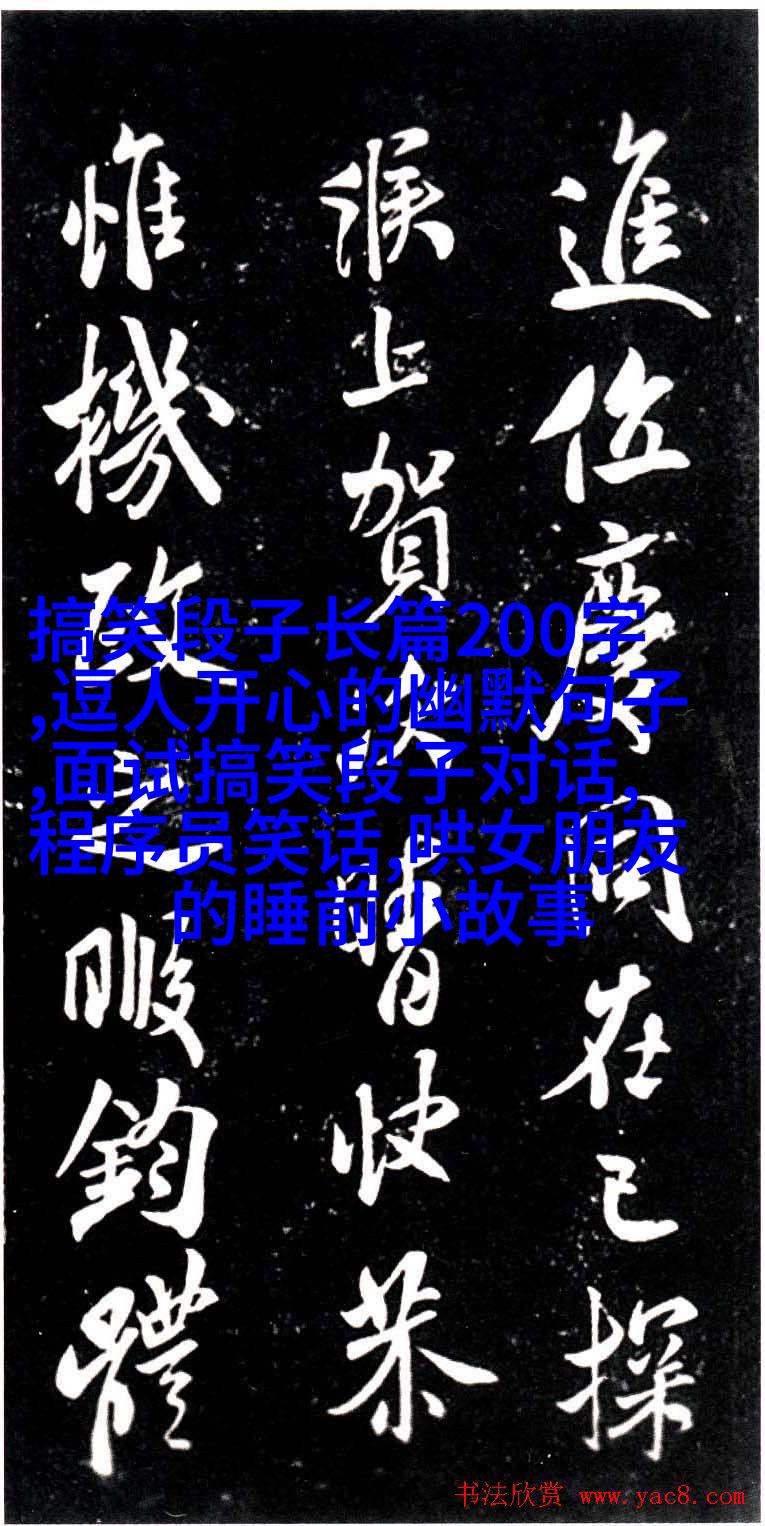 進位慶同在己探
候上賀次晴快恭
惟機政之暇鈞體
搞笑段子长篇200字
,逗人开心的幽默句子
,面试搞笑段子对话,
程序员笑话,哄女朋友
的睡前小故事
书法欣赏 www.yac8.com